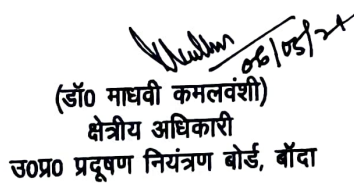 06/05/24
(डॉ0 माधवी कमलवंशी)
क्षेत्रीय अधिकारी
उ0प्र0 प्रदूषण नियंत्रण बोर्ड, बाँदा